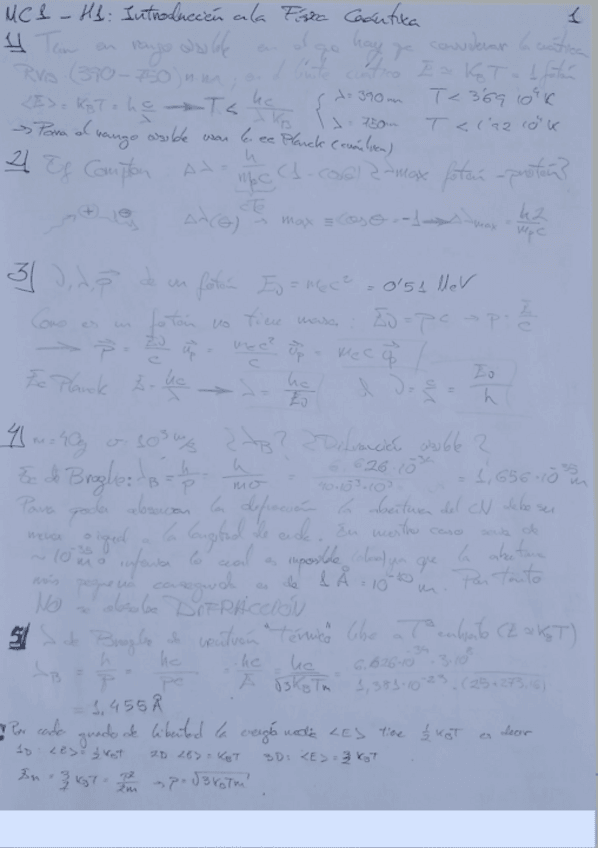 MC1 - H1: Introducción a la Física Cuántica 1
1) T en rango visible en el que hay que considerar la cuántica
RVis (390-750) nm, en el límite cuántico E ≈ K_B T = 1 fotón
<E> = K_B T = h c/λ → T < hc/(λ K_B) { λ = 390 nm T < 3'69 10⁴ K
λ = 750 nm T < 1'92 10⁴ K
→ Para el rango visible usar la ec Planck (cuántica)
2) Ef Compton Δλ = h/(m_p c) (1 - cos θ) ¿ max fotón - protón?
cte
Δλ(θ) → max ≡ cos θ = -1 → Δλ_max = h2/(m_p c)
3) ν, λ, p⃗ de un fotón E₀ = m_e c² = 0'51 MeV
Como es un fotón no tiene masa: E₀ = pc → p = E/c
→ p⃗ = E₀/c u⃗_p = m_e c²/c u⃗_p = m_e c u⃗_p
Ec Planck E = hc/λ → λ = hc/E₀ ν = c/λ = E₀/h
4) m = 40g v = 10³ m/s ¿λ_B? ¿Difracción visible?
Ec de Broglie: λ_B = h/p = h/(mv) = 6.626·10⁻³⁴/(40·10⁻³·10³) = 1,656·10⁻³⁵ m
Para poder observar la difracción la abertura del CN debe ser
menor o igual a la longitud de onda. En nuestro caso sería de
~10⁻³⁵ m o inferior lo cual es imposible ya que la abertura
más pequeña conseguida es de 1 Å = 10⁻¹⁰ m. Por tanto
NO se observa DIFRACCIÓN
5) λ de Broglie de neutrón "térmico" libre a Tª ambiente (E ≈ K_B T)
λ_B = h/p = hc/pc = hc/E = hc/√(3K_B T m) = 6,626·10⁻³⁴·3·10⁸/(1,381·10⁻²³·(25+273,15))
= 1,455 Å
Por cada grado de libertad la energía media <E> tiene ½ K_B T es decir
1D: <E> = ½ K_B T 2D: <E> = K_B T 3D: <E> = 3/2 K_B T
E_n = 3/2 K_B T = p²/2m → p = √(3K_B T m)